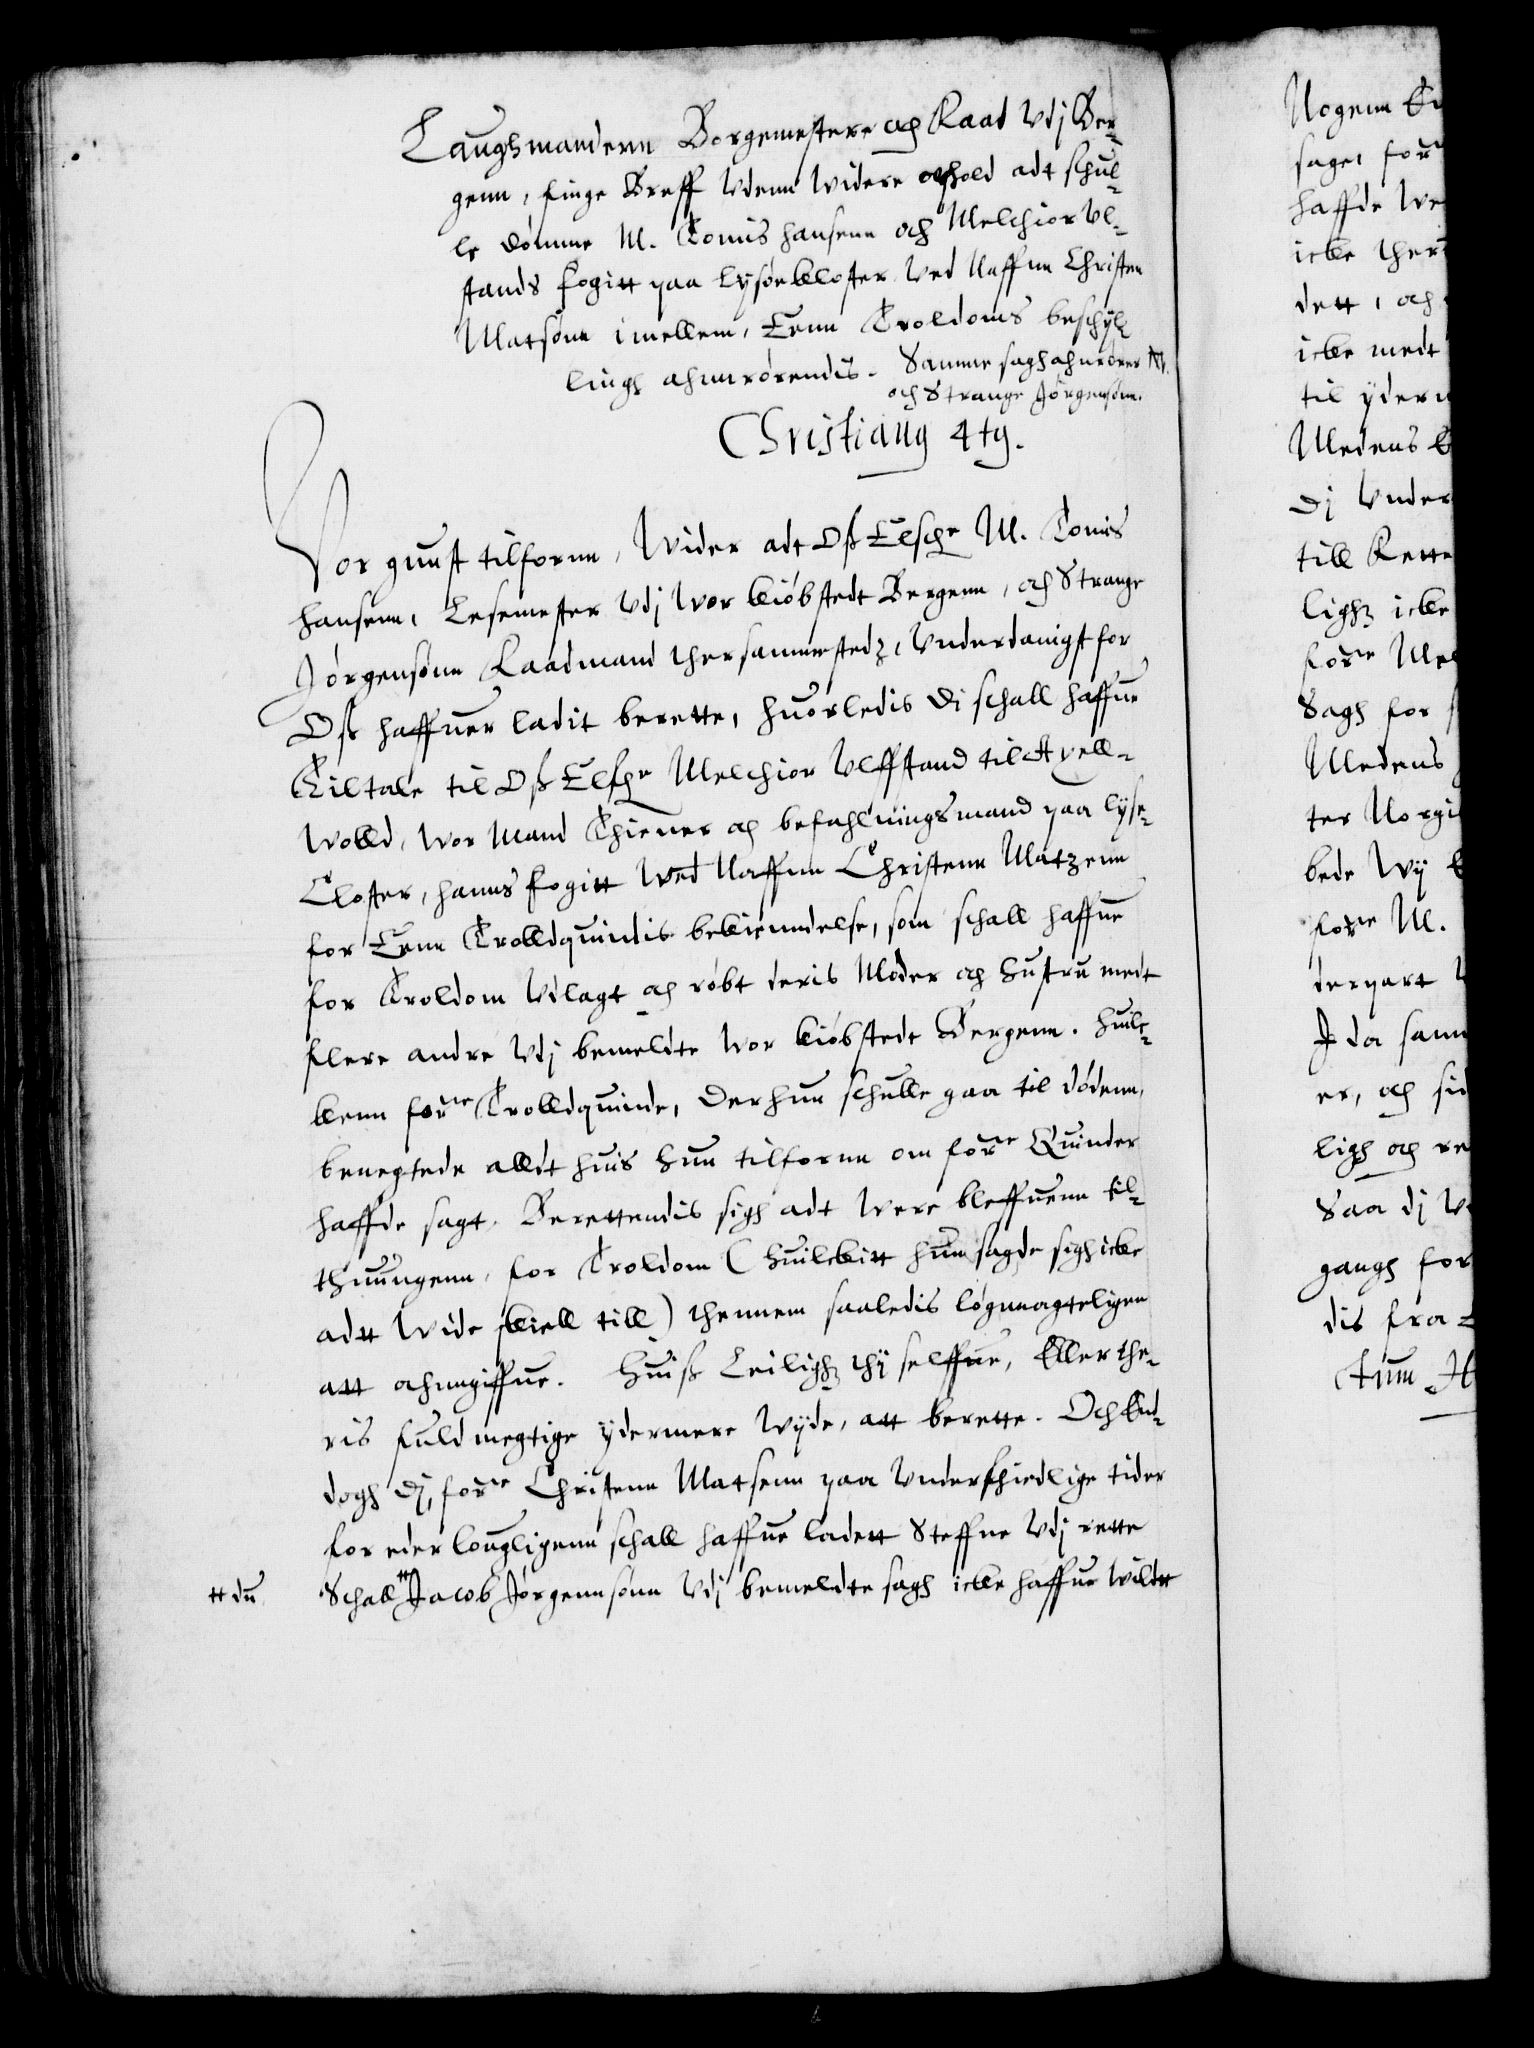 Laughmandenn Borgemestere och Raad Vdj Ber¬
genn, finge Breff Vdenn widere ophold adt schul¬
le dømme M. Tonnis hansenn och Melchior Vl¬
stands fogitt paa Lysøekloster Ved Naffnn Christen
Matsønn imellem, Eenn Troldoms beschyl¬
lingh ahnnrørendis. Samme sagh ahnrører
och Strange Jørgensønn.
Christianus 4tus.
Vor gunst tilfornn, Wider adt Oss Elsche M. Tonnis
hansenn, Lesemester Vdj Wor kiøbstedt Bergenn, och Strange
Jørgensønn Raadmand thersammestedz, Vnderdanigst for
Oss haffuer ladit berette, huorledis di schall haffue
Tiltale til Oss Elsche Melchior Vlffstand til Apell¬
wolld, Wor Mand Thiener och befahlningsmand paa Lyse¬
Closter, hanns fogitt Wed Naffnn Christenn Matzenn
for Eenn Trolldquindis bekienndelse, som schall haffue
for Troldom Vdlagt och røbt deris Moder och hustru medt
flere andre Vdj bemeldte Wor kiøbstedt Bergenn. huilc¬
kenn forne Trolldquinde, Der hun schulle gaa til dødenn,
benegtede alldt huis hun tilfornn om forne Quinder
haffde sagt. Berettendis sigh adt were bleffuenn til¬
thuungenn, for Troldom (huilckitt hun sagde sigh icke
adtt wide skiell till) thennem saaledis løgnnagteligen
att ahnngiffue. Huiss Leilighz thÿ selffue, Eller the¬
ris fuldmegtige ÿdermere wÿde, att berette. Och End¬
dogh dj, forne Christenn Matsenn paa Vnderschiedlige tider
for eder lougligenn schall haffue ladett Steffne Vdj rette
tt du Schall tt Jacob Jørgennsønn Vdj bemeldte sagh icke haffue wildtt
Nogenn
sagei for
haffde We
icke ther
dett, och
icke medt
til ÿderm
Medens
Dj Vnder
till Rette
lighz icke
forne Mel
Sagh for
Medens
ter Norgi
bede Wÿ
forne M.
derpart
J da sam
er, och sid
ligh och re
Saa dj
gangh for
dis fra
Ctum